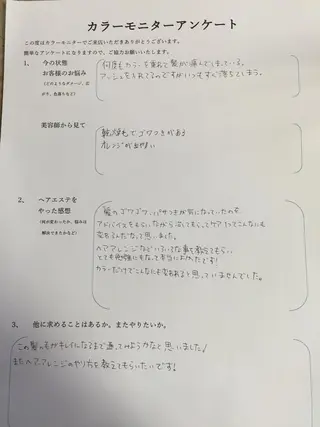 カラーモニターアンケート
この度はカラーモニターでご来店いただきありがとうございます。
簡単なアンケートになりますので、ご協力お願いいたします。
1. 今の状態
お客様のお悩み
何度もカラーを重ねて髪が痛んでしまっている。
アッシュを入れてるのですがいつもすぐ落ちてしまう。
美容師から見て
乾燥毛でゴワつきがある
オレンジが出やすい
2. ヘアエステを
やった感想
(何が変わったか、悩みは
解決できたかなど)
髪のゴワゴワ、パサつきが気になっていたので
アドバイスをもらいながら染てもらってケアってこんなにも
変わるんだなって思いました。
ヘアアレンジなどいろいろな事も教えてもらい、
とても勉強にもなって本当によかったです!
カラーだけでこんなにも変わると思っていませんでした。
3. 他に求めることはあるか。またやりたいか。
この髪の毛がキレイになるまで通ってみようかなと思いました!
またヘアアレンジのやり方を教えてもらいたいです!